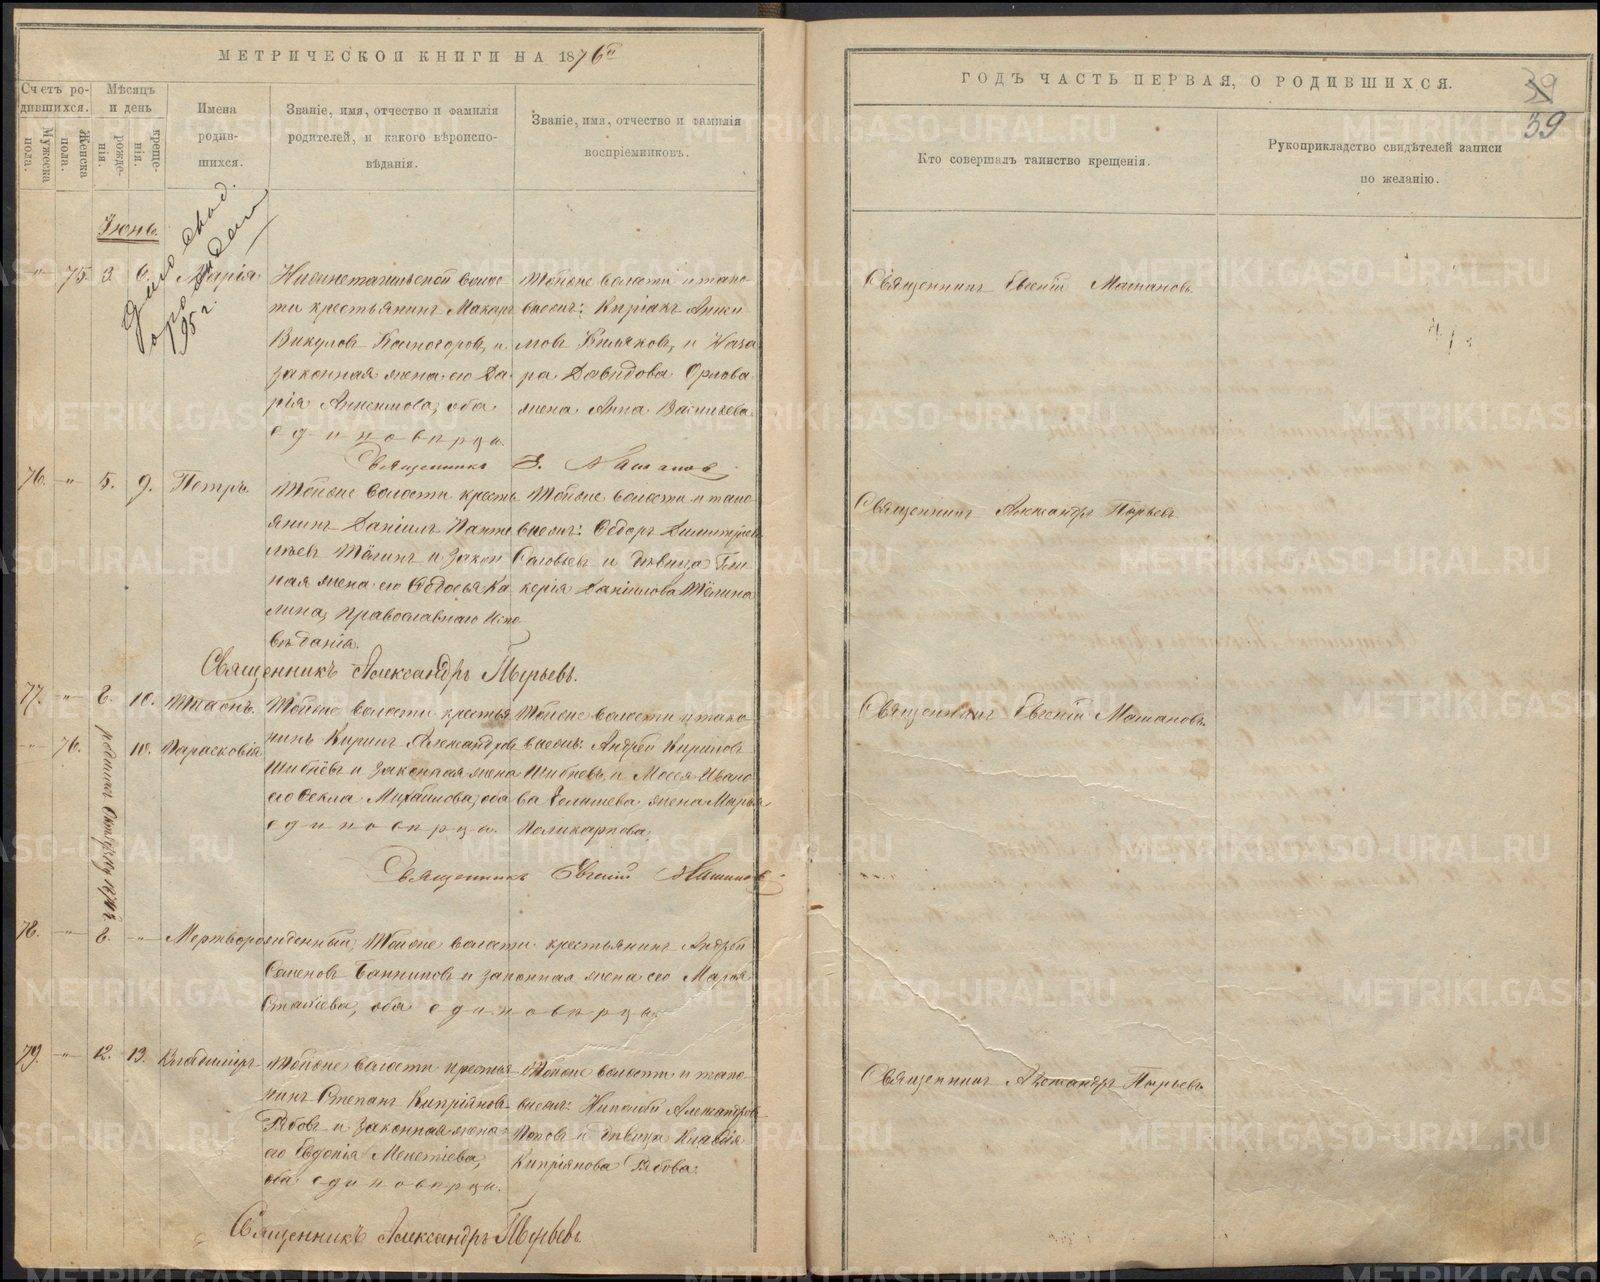 МЕТРИЧЕСКОЙ КНИГИ НА 1876й
Счетъ родившихся.
Мужеска пола.
Женска пола.
Мѣсяцъ и день
рожденія.
крещенія.
Имена родившихся.
Званіе, имя, отчество и фамилія
родителей, и какого вѣроисповѣданія.
Званіе, имя, отчество и фамилія
воспріемниковъ.
Іюнь.
" 75. 3. 6. Марія
95 г.
Нижнетагильской волос-
ти крестьянинъ Макаръ
Викуловъ Косогоровъ, и
законная жена его Да-
рія Анисимова, оба
единоверцы.
Тойже волости и тано-
Аники-
мовъ и Наза-
ра Давидова Орлова
жена Анна Васильева
Священникъ Е. Машановъ
76. " 5. 9. Петръ.
Тойже волости кресть-
янинъ Даніилъ Панте-
лѣевъ и закон-
ная жена его Ка-
лина, православнаго испо-
вѣданія.
Тойже волости и тано-
Ѳедоръ Димитріевъ
Соловьевъ и дѣвица Гли-
керія Даніилова
Священникъ Александръ Пырьевъ.
77. " 8. 10.
" 76. 10. Парасковія
Тойже волости крестья-
нинъ Кирилъ Александровъ
и законная жена
его Ѳекла Михайлова, оба
единоверцы.
Тойже волости и тако-
Андрей Кириловъ
и Мосея Ивано-
ва жена Марья
Поликарпова
Священникъ Евгеній Машановъ
78. " 8. " Мертворожденный, Тойже волости крестьянинъ Андрей
Семеновъ Банниковъ и законная жена его Марѳа
оба единоверцы.
79. " 12. 13. Владиміръ
Тойже волости крестья-
нинъ Степанъ Кипріяновъ
Рябовъ и законная жена
его Евдокія
оба единоверцы.
Тойже волости и тако-
Николай Александровъ
Поповъ и дѣвица Клавдія
Кипріянова Рябова.
Священникъ Александръ Пырьевъ
ГОДЪ ЧАСТЬ ПЕРВАЯ, О РОДИВШИХСЯ.
39
39
Кто совершалъ таинство крещенія.
Рукоприкладство свидѣтелей записи
по желанію.
Священникъ Евгеній Машановъ
Священникъ Александръ Пырьевъ
Священникъ Евгеній Машановъ.
Священникъ Александръ Пырьевъ
METRIKI.GASO-URAL.RU